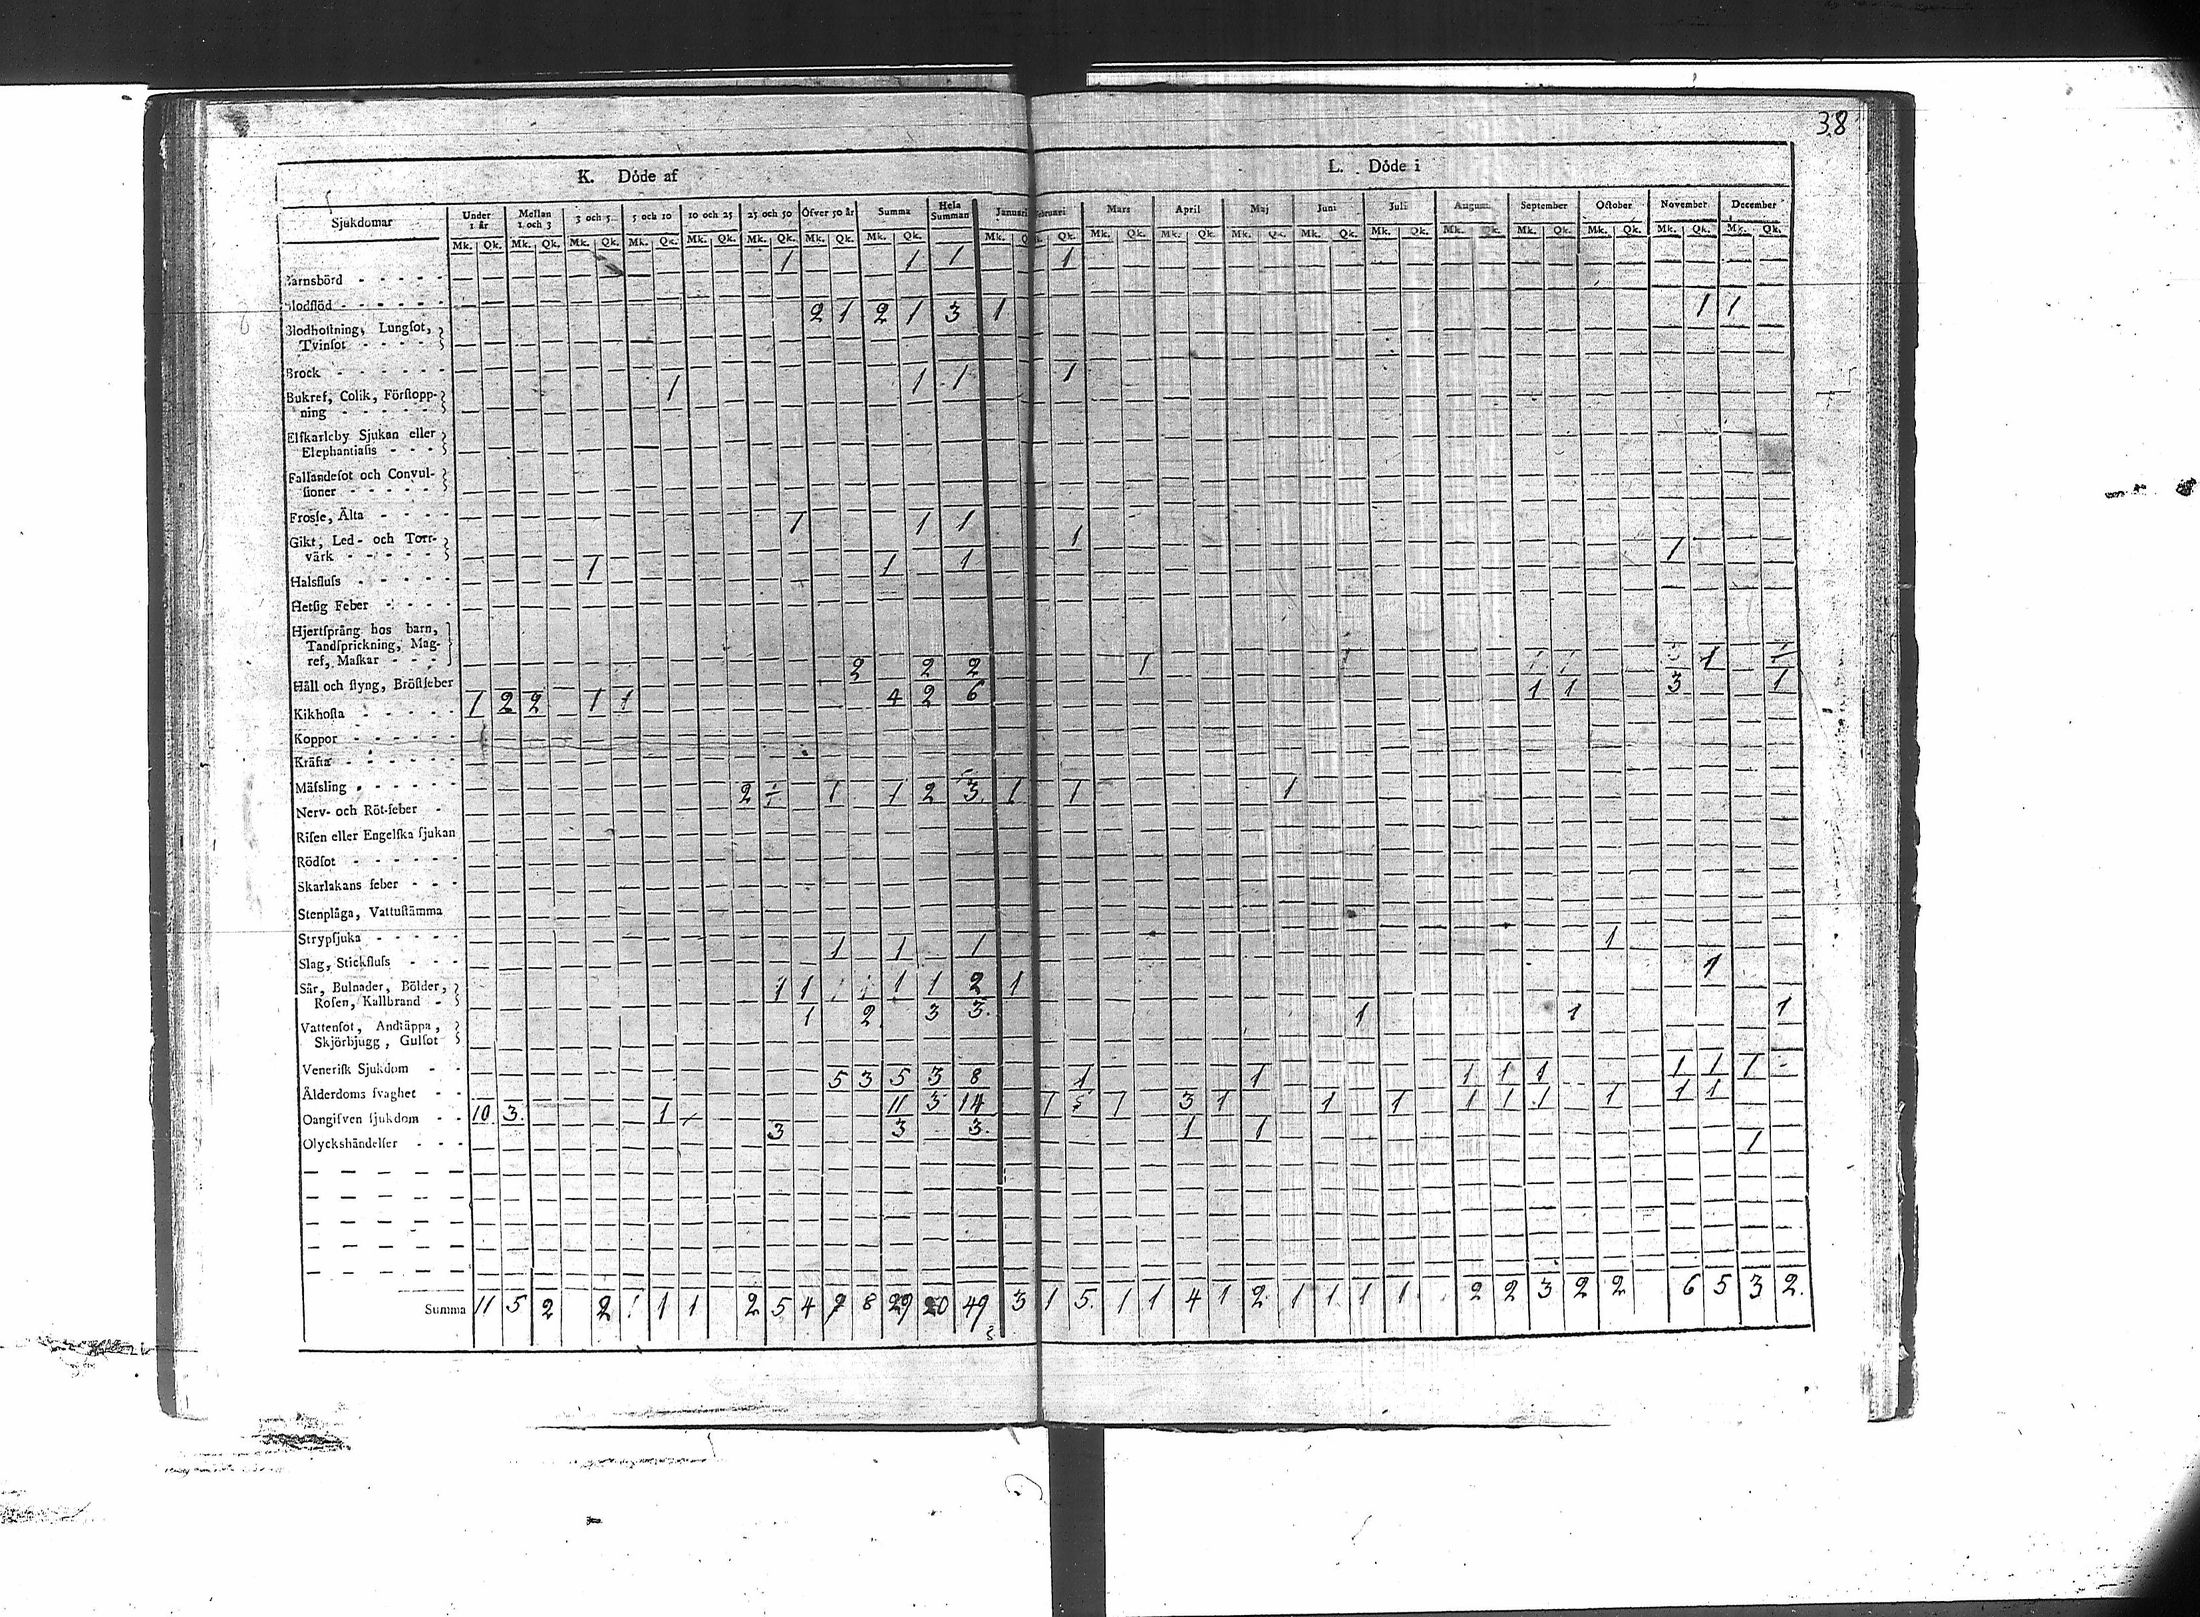 38
K. Döde af
L. Döde i
Sjukdomar Under 1 år Meſlan 1 och 3 3 och 5 5 och 10 10 och 25 25 och 50 Öfver 50 år Summa Hela Summan Januari Februari Mars April Maj Juni Juli August. September October November December
Mk. Qk. Mk. Qk. Mk. Qk. Mk. Qk. Mk. Qk. Mk. Qk. Mk. Qk. Mk. Qk. Mk. Qk. Mk. Qk. Mk. Qk. Mk. Qk. Mk. Qk. Mk. Qk. Mk. Qk. Mk. Qk. Mk. Qk. Mk. Qk. Mk. Qk.
Barnsbörd 1 1 1 1
Blodflöd
Blodhoſtning, Lungſot, Tvinſot 2 1 2 1 3 1 1 1
Brock
Bukref, Colik, Förſtoppning 1 1 1 1
Elfkarleby Sjukan eller Elephantiaſis
Fallandeſot och Convulſioner
Frosſe, Älta
Gikt, Led- och Torrvärk 1 1 1 1
Halsfluſs 1 1 1 1
Hetſig Feber
Hjertſprång hos barn, Tandſprickning, Magref, Maſkar
Håll och ſtyng, Bröſtfeber 2 2 2 1 1
Kikhoſta 1 2 2 1 1 4 2 6 1 1 3 1
Koppor
Kräfta
Mäſsling
Nerv- och Röt-feber 2 1 1 2 3 1 1 1
Riſen eller Engelſka ſjukan
Rödſot
Skarlakans feber
Stenplåga, Vattuſtämma
Strypſjuka
Slag, Stickfluſs 1 1 1 1
Sår, Bulnader, Bölder, Roſen, Kallbrand 1 1 1 1 2 1 1
Vattenſot, Andtäppa, Skjörbjugg, Gulſot 1 2 3 3 1 1 1
Veneriſk Sjukdom
Ålderdoms ſvaghet 5 3 5 3 8 1 1 1 1 1 1 1 1
Oangifven ſjukdom 10 3 1 11 3 14 1 1 3 1 1 1 1 1 1 1 1 1
Olyckshändelſer 3 3 3 1 1 1
Summa 11 5 2 2 1 1 1 2 5 4 7 8 29 20 49 3 1 5 1 1 4 1 2 1 1 1 1 2 2 3 2 2 6 5 3 2